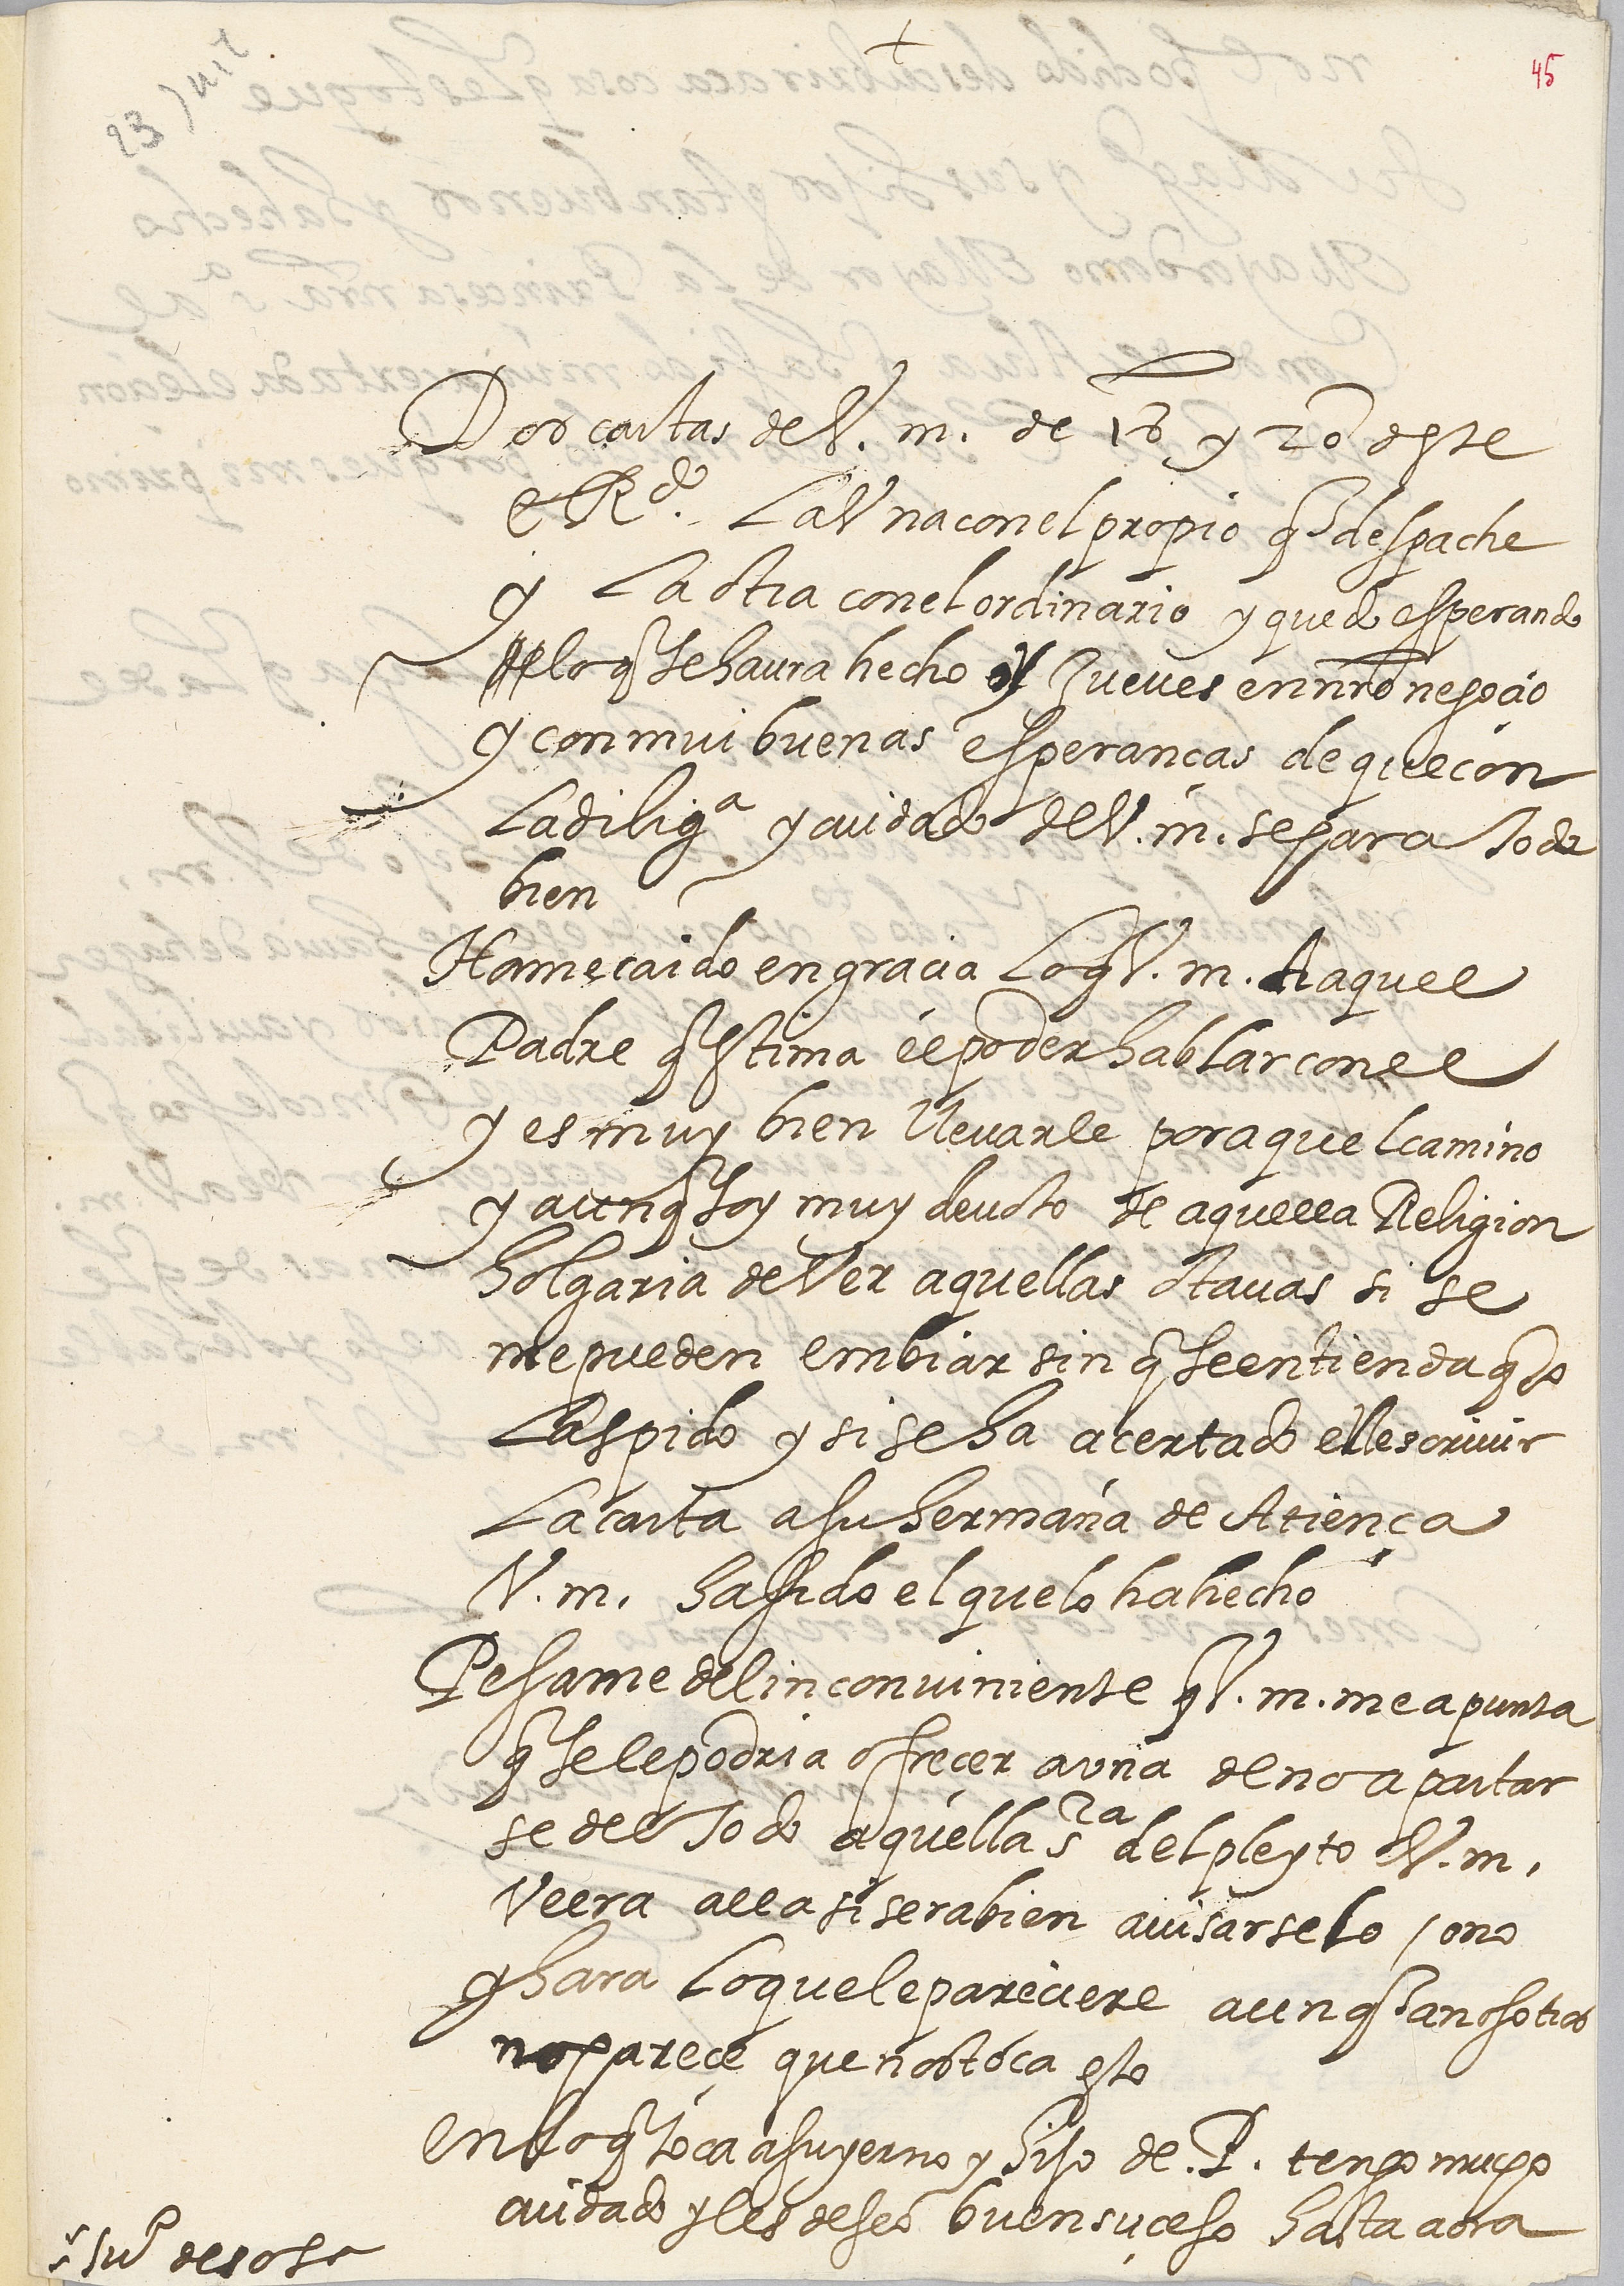 +
45
23 Junio
Dos cartas de V. m. de 18 y 20 deste
e Rdo. La Vna con el propio q despache
y La otra con el ordinario y quedo esperando
lo q se haura hecho el Jueves en nro negocio
y con mui buenas esperanças de que con
La diliga y cuidado de V. m. se hara todo
bien
Hame caido en gracia Lo q V. m. Aaquel
Padre q estima el poder hablar con el
y es muy bien llevarle por aquel camino
y aunq soy muy deuoto de aquella Religion
holgaria de Ver aquellas otauas si se
me pueden embiar sin q se entienda q yo
Las pido y si se ha acertado el escriuir
La carta a su hermana de Atiença
V. m. ha sido el que lo ha hecho
Pesame del inconuiniente q V. m. me apunta
q se le podria ofrecer a una de no apartar
se del todo aquella sra del pleyto V. m.
Veera alla si sera bien auisarselo / o no
y hara Lo que le pareciere aunq a nosotros
no parece que nos toca esto
En lo q toca a su yerno y hijo de .P. tengo mucho
cuidado y les deseo buen suceso hasta aora
sr Juo de sosa